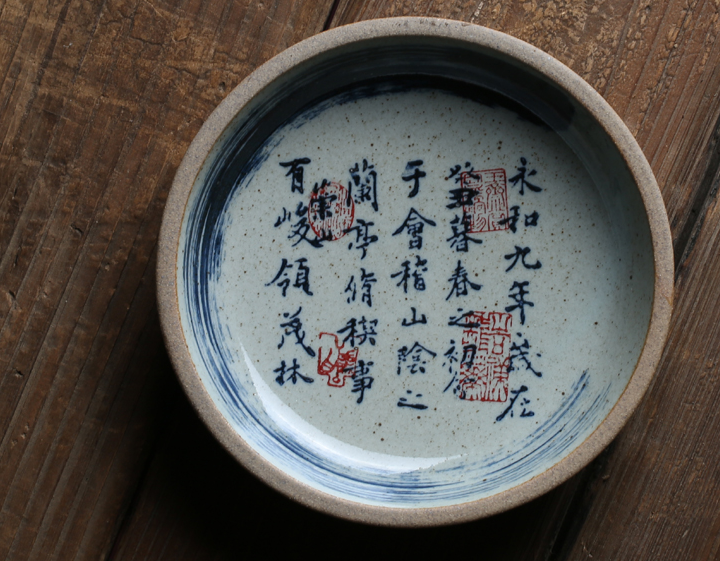 永和九年歲在
癸丑暮春之初會
于會稽山陰之
蘭亭脩禊事
崇山
有峻領茂林